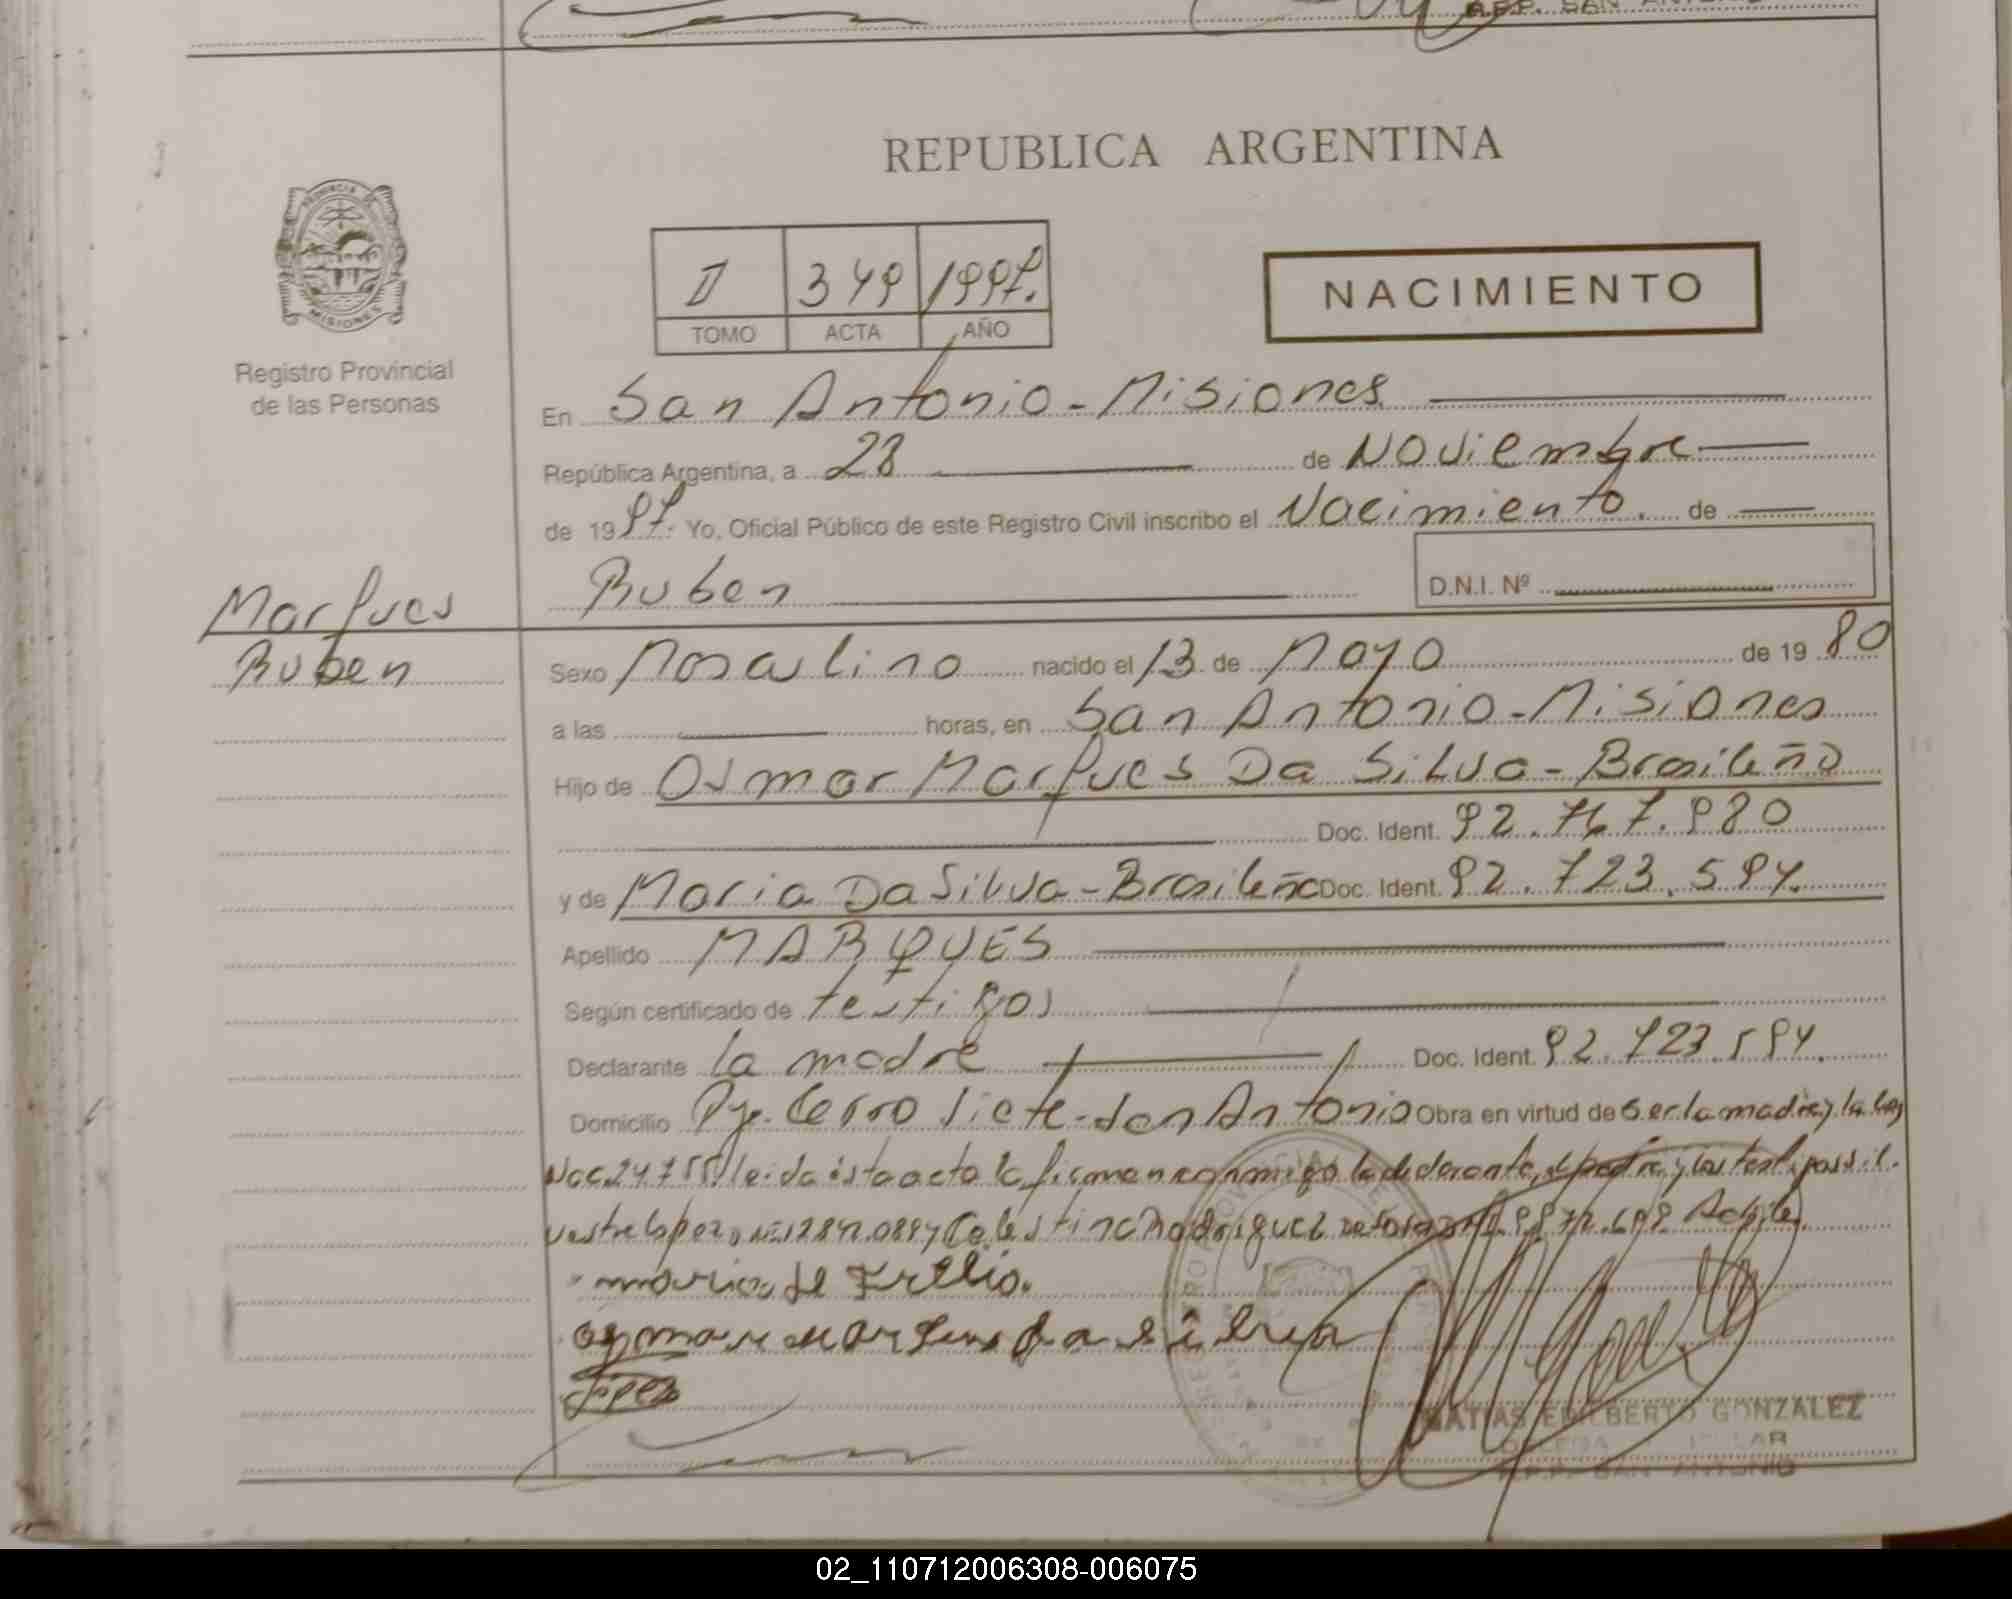 REPUBLICA ARGENTINA
PROVINCIA DE MISIONES
Registro Provincial
de las Personas
II 349 1997.
TOMO ACTA AÑO
NACIMIENTO
En San Antonio - Misiones
República Argentina, a 28 de Noviembre
de 1997. Yo, Oficial Público de este Registro Civil inscribo el Nacimiento. de
Ruben D.N.I. Nº
Marques
Ruben
Sexo Masculino nacido el 13 de Mayo de 1980
a las horas, en San Antonio - Misiones
Hijo de Osmar Marques Da Silva - Brasileño
Doc. Ident. 92.767.980
y de Maria Da Silva - Brasileña Doc. Ident. 92.723.594.
Apellido MARQUES
Según certificado de testigos
Declarante la madre Doc. Ident. 92.723.594.
Domicilio Pje. Cerro Siete - San Antonio Obra en virtud de Ser la madre y la Ley
Nac. 24755 leida esta acta la firman conmigo la declarante, el padre y los testigos Sil
vestre Lopez Celestino Rodriguez
maria
osmar marques da silva
Lopez
MATIAS EDILBERTO GONZALEZ
R.P.P. SAN ANTONIO
02_110712006308-006075